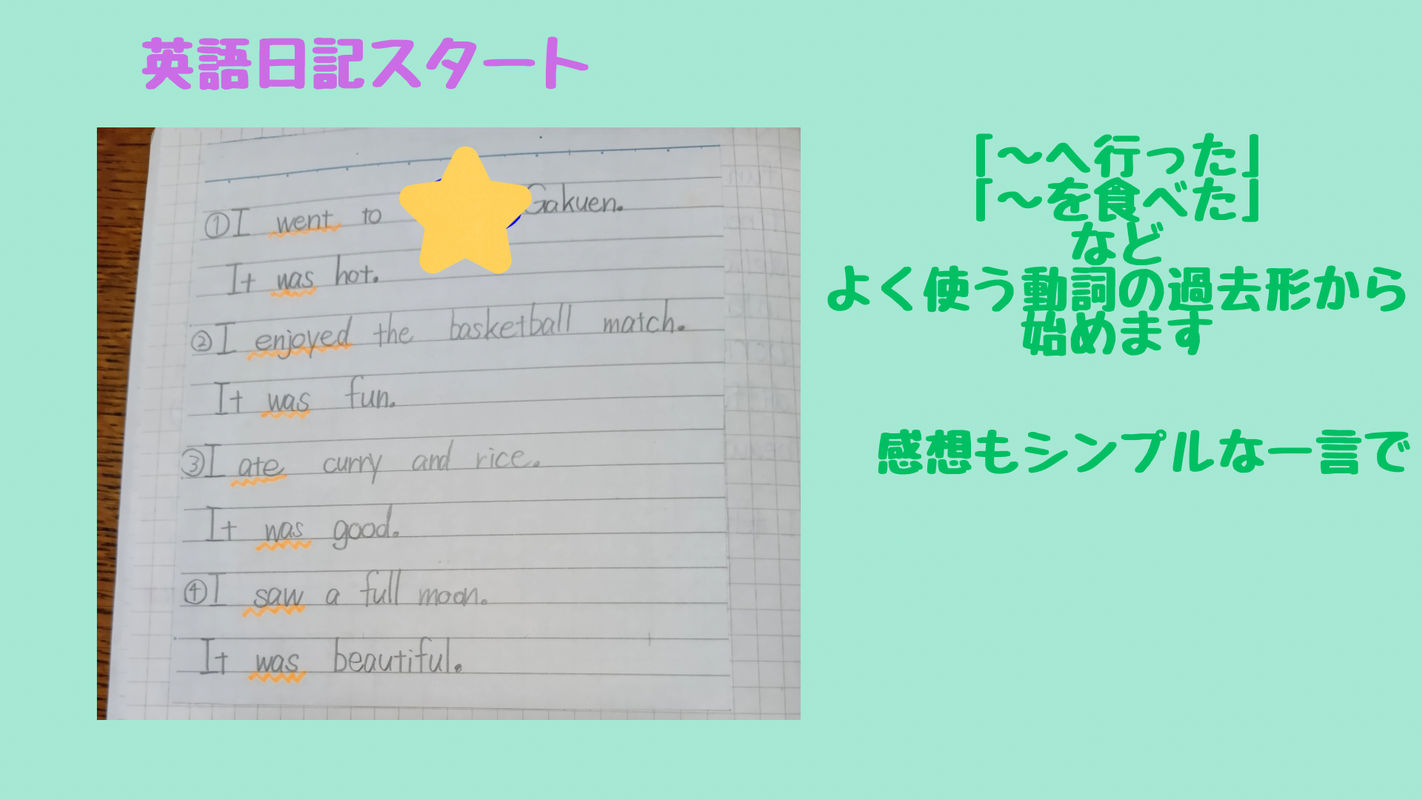 英語日記スタート
①I went to Gakuen.
It was hot.
②I enjoyed the basketball match.
It was fun.
③I ate curry and rice.
It was good.
④I saw a full moon.
It was beautiful.
「～へ行った」
「～を食べた」
など
よく使う動詞の過去形から
始めます
感想もシンプルな一言で